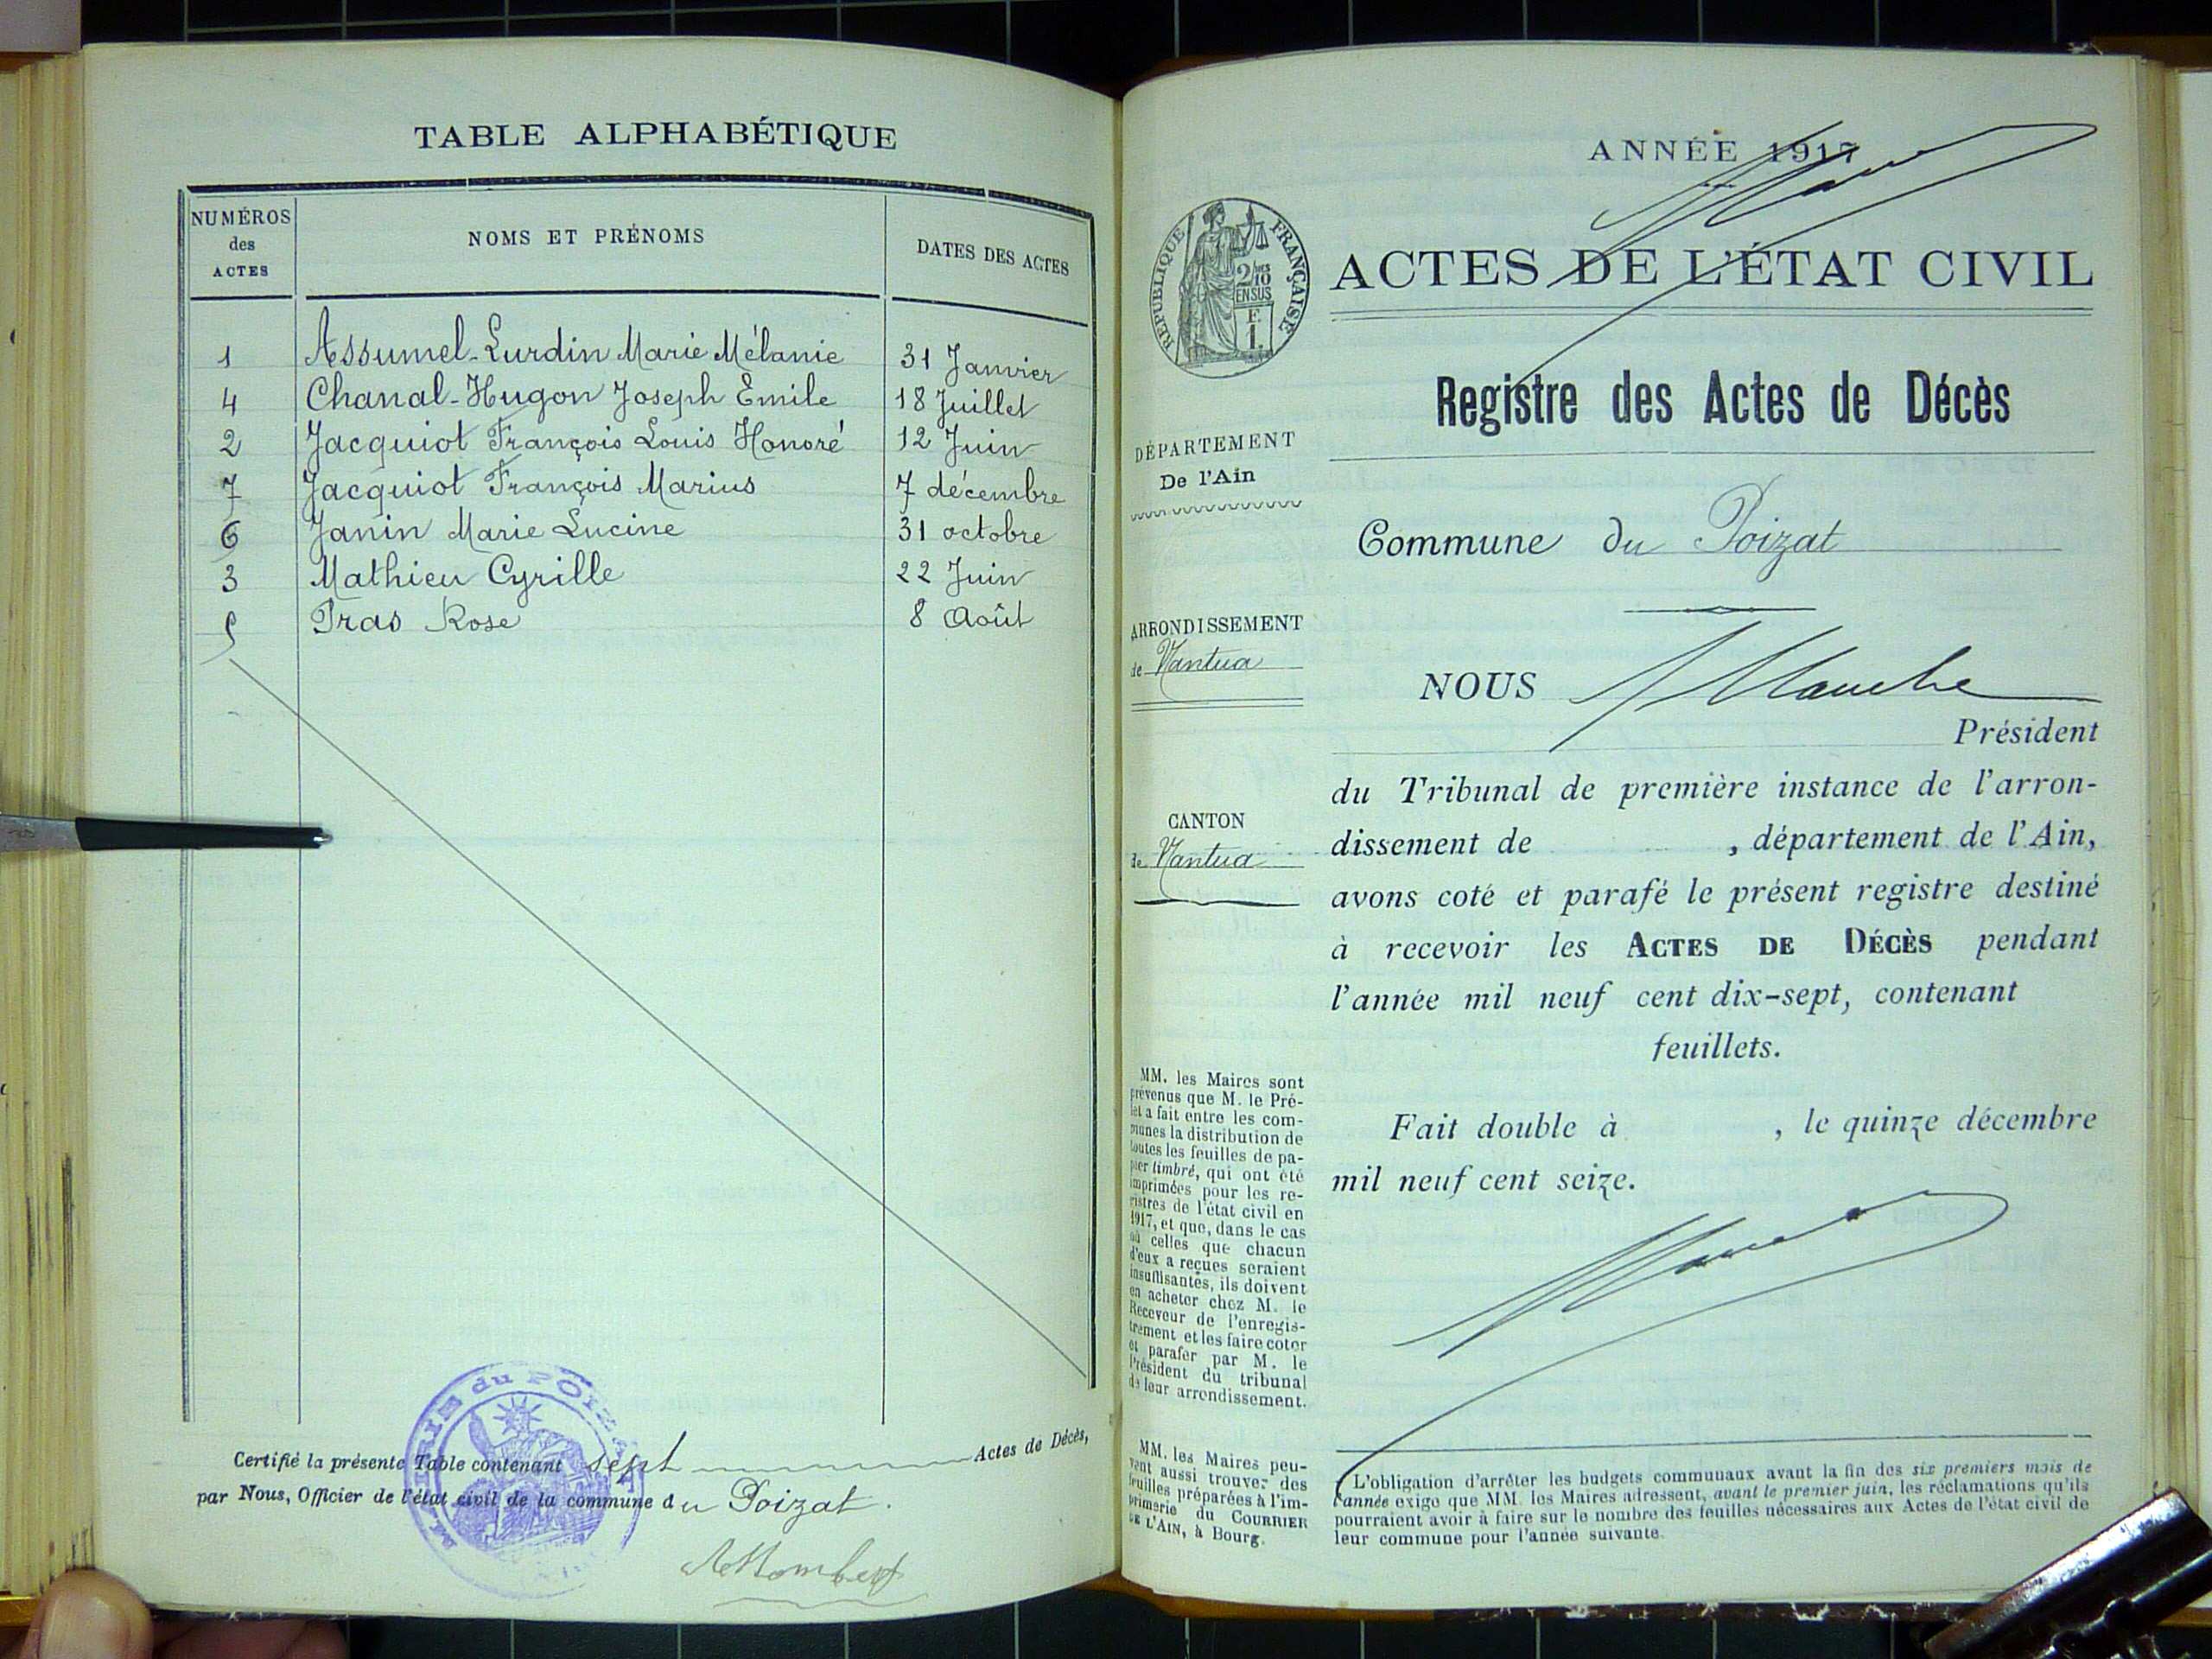 TABLE ALPHABÉTIQUE
NUMÉROS
des
ACTES
NOMS ET PRÉNOMS
DATES DES ACTES
1 Assumel-Lurdin Marie Mélanie 31 Janvier
4 Chanal-Hugon Joseph Emile 18 Juillet
2 Jacquiot François Louis Honoré 12 Juin
7 Jacquiot François Marius 7 décembre
6 Janin Marie Lucine 31 octobre
3 Mathieu Cyrille 22 Juin
5 Pras Rose 8 Août
MAIRIE du POIZAT
Certifié la présente Table contenant sept Actes de Décès,
par Nous, Officier de l'état civil de la commune du Poizat.
ANNÉE 1917
RÉPUBLIQUE FRANÇAISE
2/10
EN SUS
F.
1.
ACTES DE L'ÉTAT CIVIL
Registre des Actes de Décès
DÉPARTEMENT
De l'Ain
Commune du Poizat
ARRONDISSEMENT
de Nantua
CANTON
de Nantua
NOUS
Président
du Tribunal de première instance de l'arron-
dissement de , département de l'Ain,
avons coté et parafé le présent registre destiné
à recevoir les ACTES DE DÉCÈS pendant
l'année mil neuf cent dix-sept, contenant
feuillets.
Fait double à , le quinze décembre
mil neuf cent seize.
MM. les Maires sont
prévenus que M. le Pré-
fet a fait entre les com-
munes la distribution de
toutes les feuilles de pa-
pier timbré, qui ont été
imprimées pour les re-
gistres de l'état civil en
1917, et que, dans le cas
où celles que chacun
d'eux a reçues seraient
insuffisantes, ils doivent
en acheter chez M. le
Receveur de l'enregis-
trement et les faire coter
et parafer par M. le
Président du tribunal
de leur arrondissement.
MM. les Maires peu-
vent aussi trouver des
feuilles préparées à l'im-
primerie du COURRIER
DE L'AIN, à Bourg.
L'obligation d'arrêter les budgets communaux avant la fin des six premiers mois de
l'année exige que MM. les Maires adressent, avant le premier juin, les réclamations qu'ils
pourraient avoir à faire sur le nombre des feuilles nécessaires aux Actes de l'état civil de
leur commune pour l'année suivante.